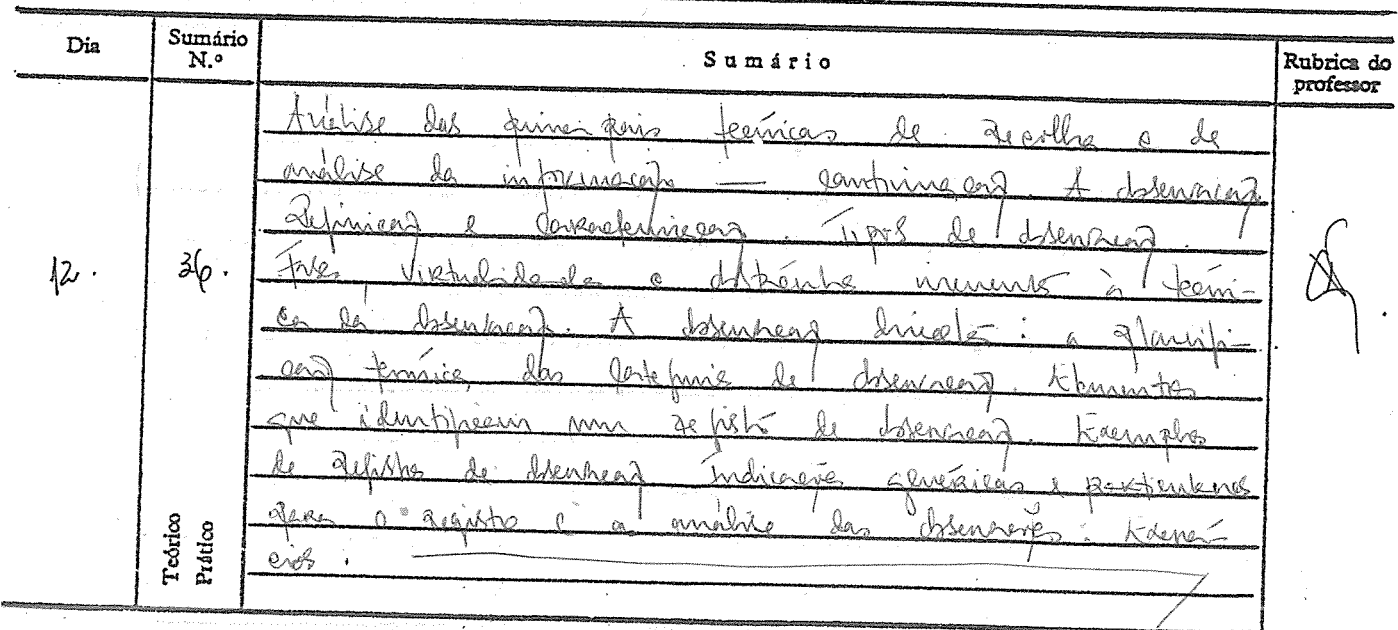 Dia
Sumário N.º
Sumário
Rubrica do professor
Análise das principais técnicas de recolha e de
análise da informação — continuação. A observação.
Definição e caracterização. Tipos de observação.
12.
36.
virtualidades e inerentes à técni-
ca da observação. A observação directa: a planifi-
cação das categorias de observação. Elementos
que identificam um registo de observação. Exemplos
de registos de observação. Indicações genéricas e particulares
para o registo e a análise das observações. Exercí-
cios.
Teórico
Prático